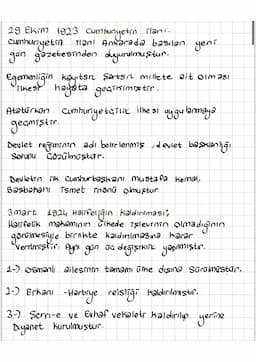 29 Ekim 1923 Cumhuriyetin ilanı:
Cumhuriyetin ilanı Ankarada basılan yeni
gün gazetesinden duyurulmuştur.
Egemenliğin kayıtsız şartsız millete ait olması
ilkesi hayata geçirilmiştir.
Atatürkün Cumhuriyetçilik ilkesi uygulanmaya
geçmiştir.
Devlet rejiminin adı belirlenmiş, devlet başkanlığı
sorunu çözülmüştür.
Devletin ilk Cumhurbaşkanı mustafa kemal,
Başbakanı İsmet inönü olmuştur.
3 mart 1924 Halifeliğin kaldırılması:
Halifelik makamının ülkede işlevinin olmadığının
görülmesiyle birlikte kaldırılmasına karar
verilmiştir. Aynı gün üç değişiklik yapılmıştır.
1-) Osmanlı ailesinin tamamı ülke dışına sürülmüştür.
2-) Erkanı -Harbiye reisliği kaldırılmıştır.
3-) Şerri-e ve Evkaf vekaleti kaldırılıp yerine
Diyanet kurulmuştur.